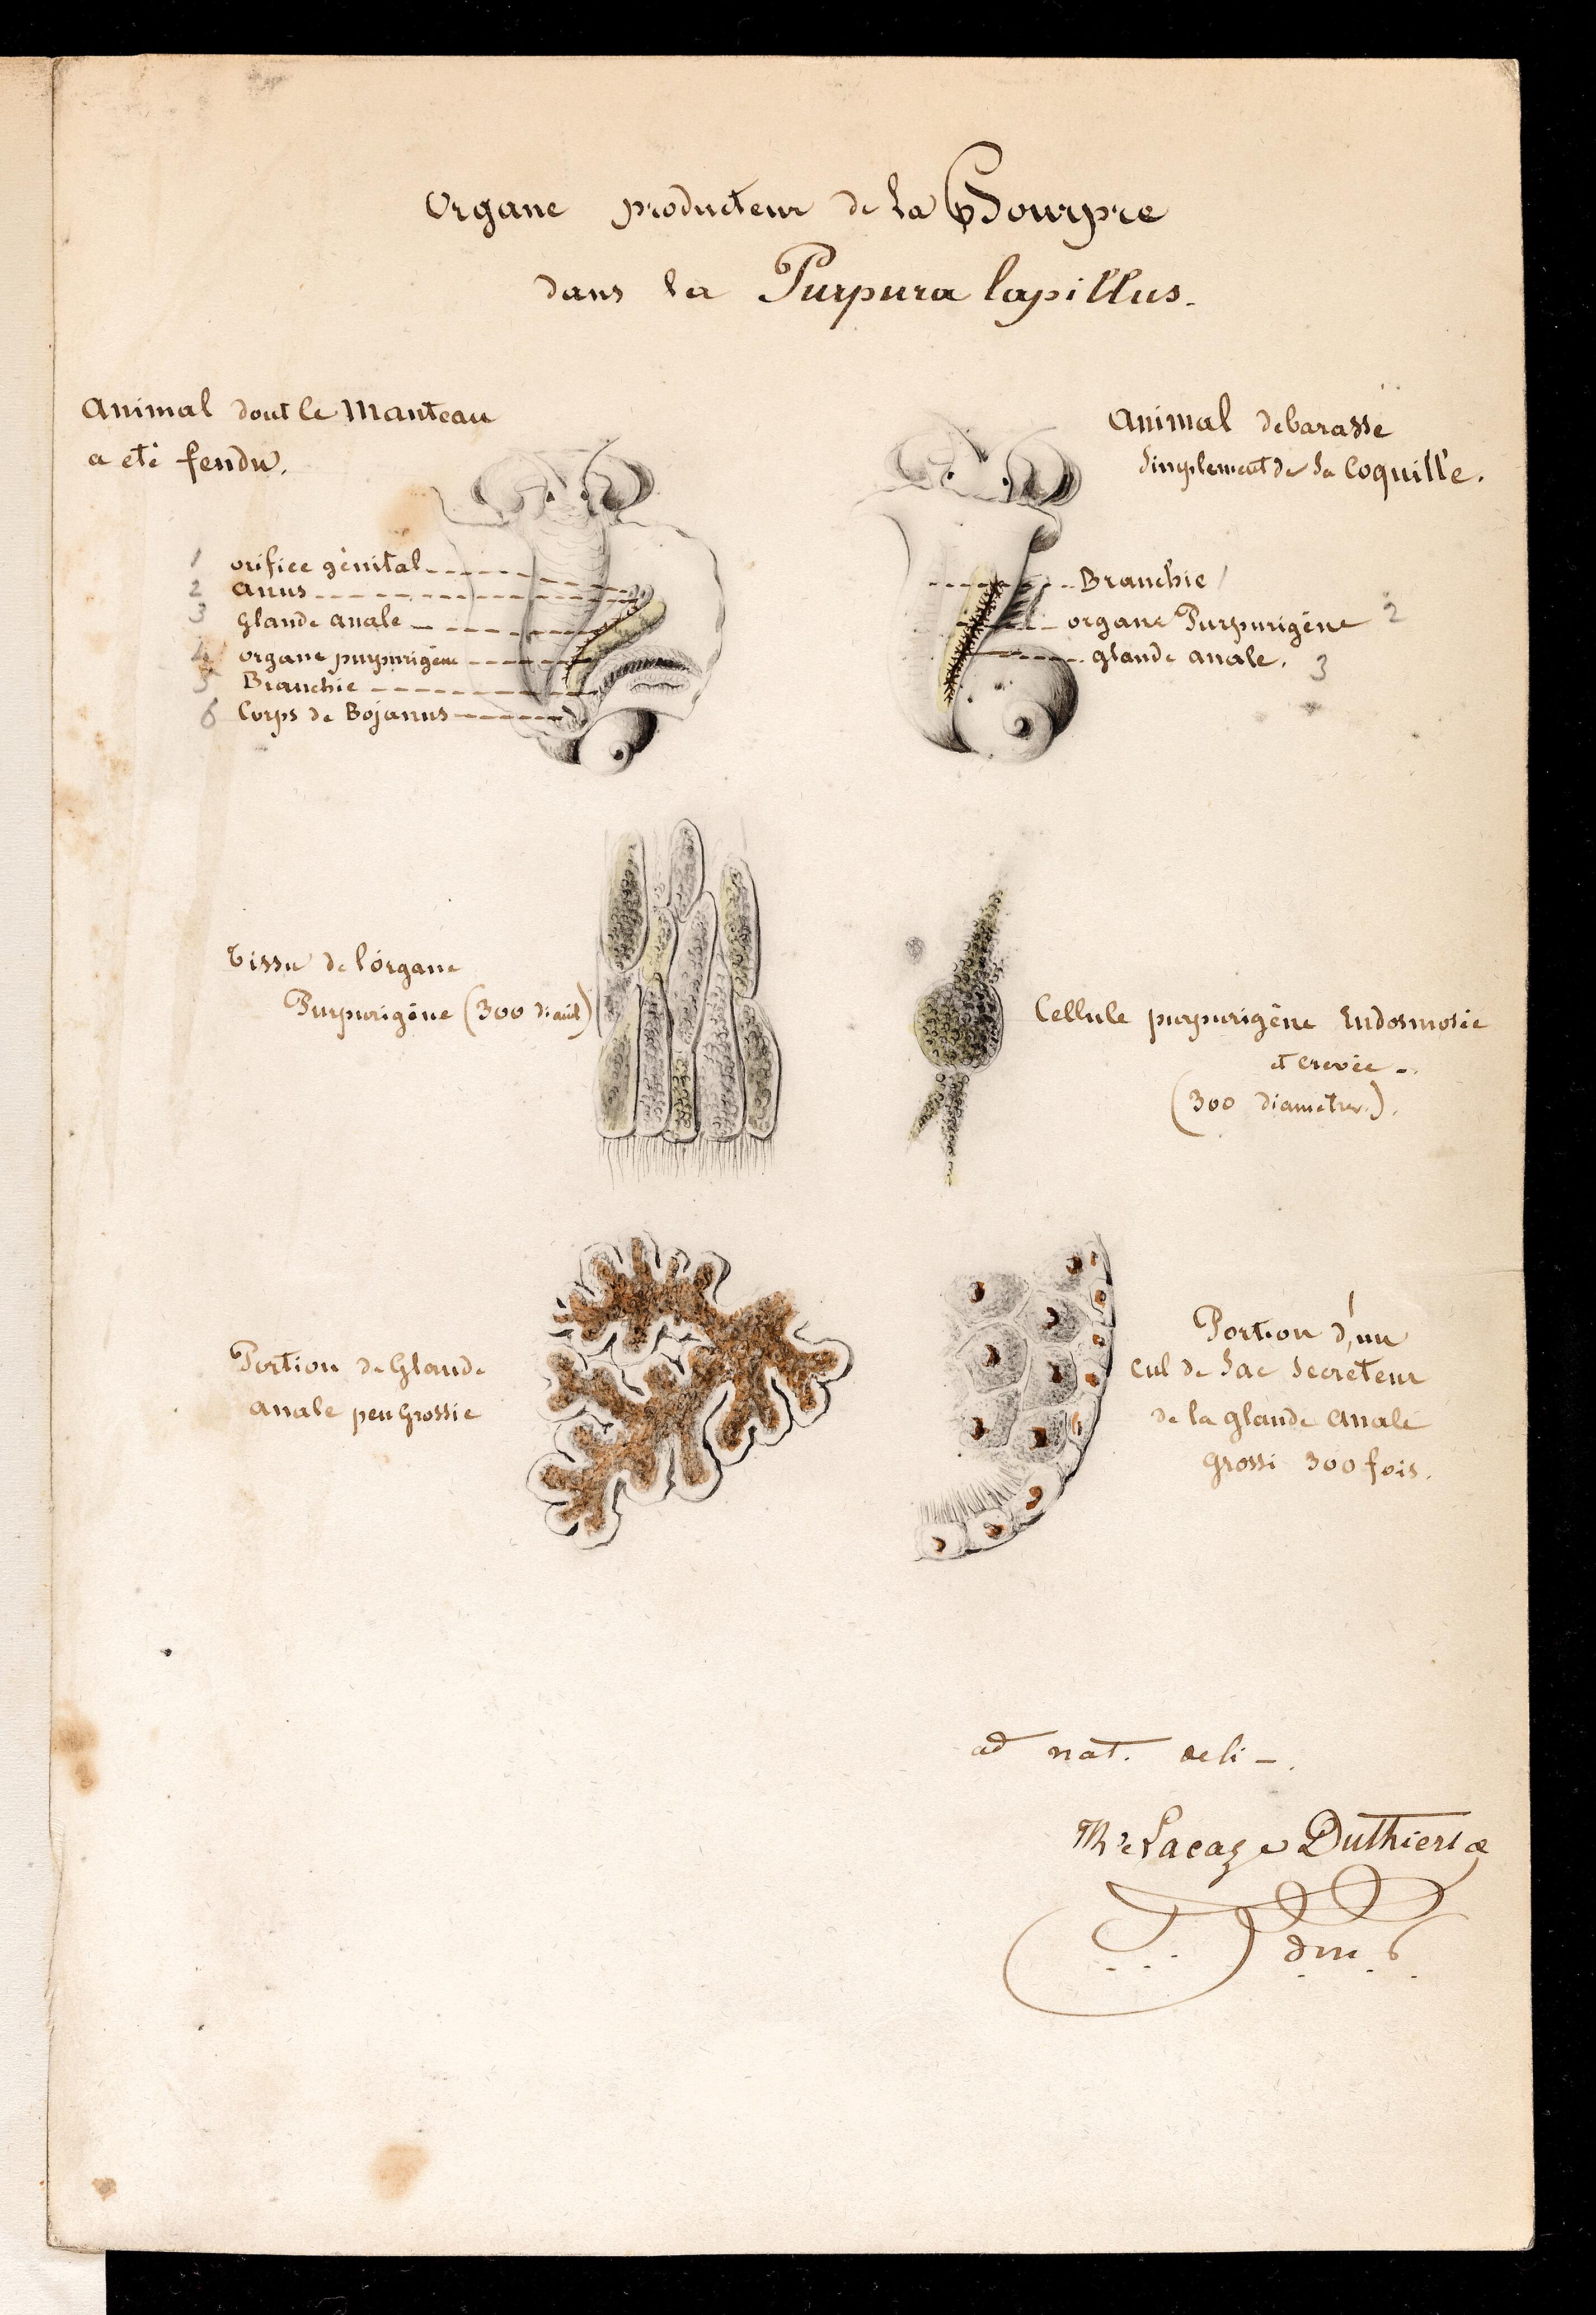 Organe producteur de la Pourpre
dans la Purpura lapillus.
Animal dont le Manteau
a eté fendu.
1 orifice génital
2 anus
3 glande anale
4 organe purpurigène
5 Branchie
6 Corps de Bojanus
Animal debarassé
Simplement de Sa Coquille.
Branchie 1
organe Purpurigène 2
glande anale. 3
Tissu de l'organe
Purpurigène (300 diam)
Cellule purpurigène Endosmosée
et crevée.
(300 diametres).
Portion de Glande
anale peu Grossie
Portion d'un
cul de Sac Secreteur
de la glande anale
grossi 300 fois.
ad nat. deli
Lacaze Duthiers